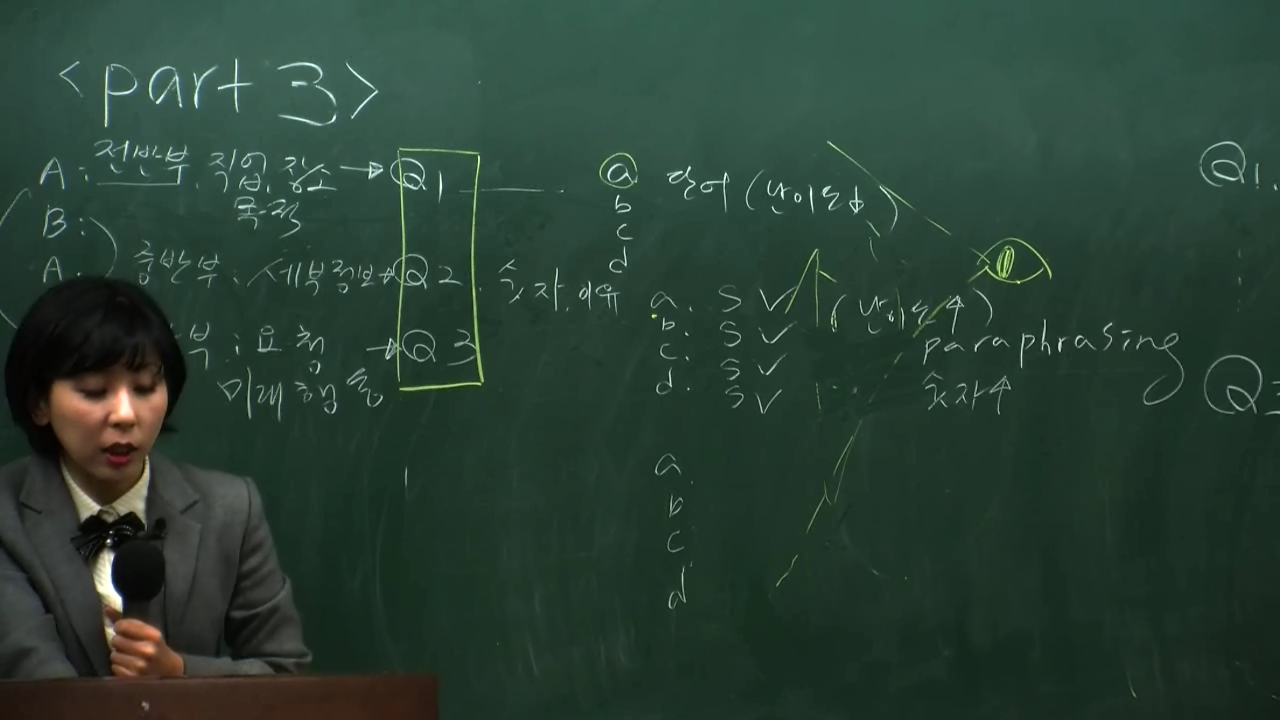 <part 3>
A: 전반부, 직업, 장소 → Q1
목적
B:
A: 중반부: 세부정보 → Q2. 숫자, 이유
부: 요청 → Q3
미래행동
a 단어 (난이도↓)
b
c
d
a. S V
b. S V
c. S V
d. S V
(난이도↑)
paraphrasing
숫자↑
a.
b
c
d
Q1.